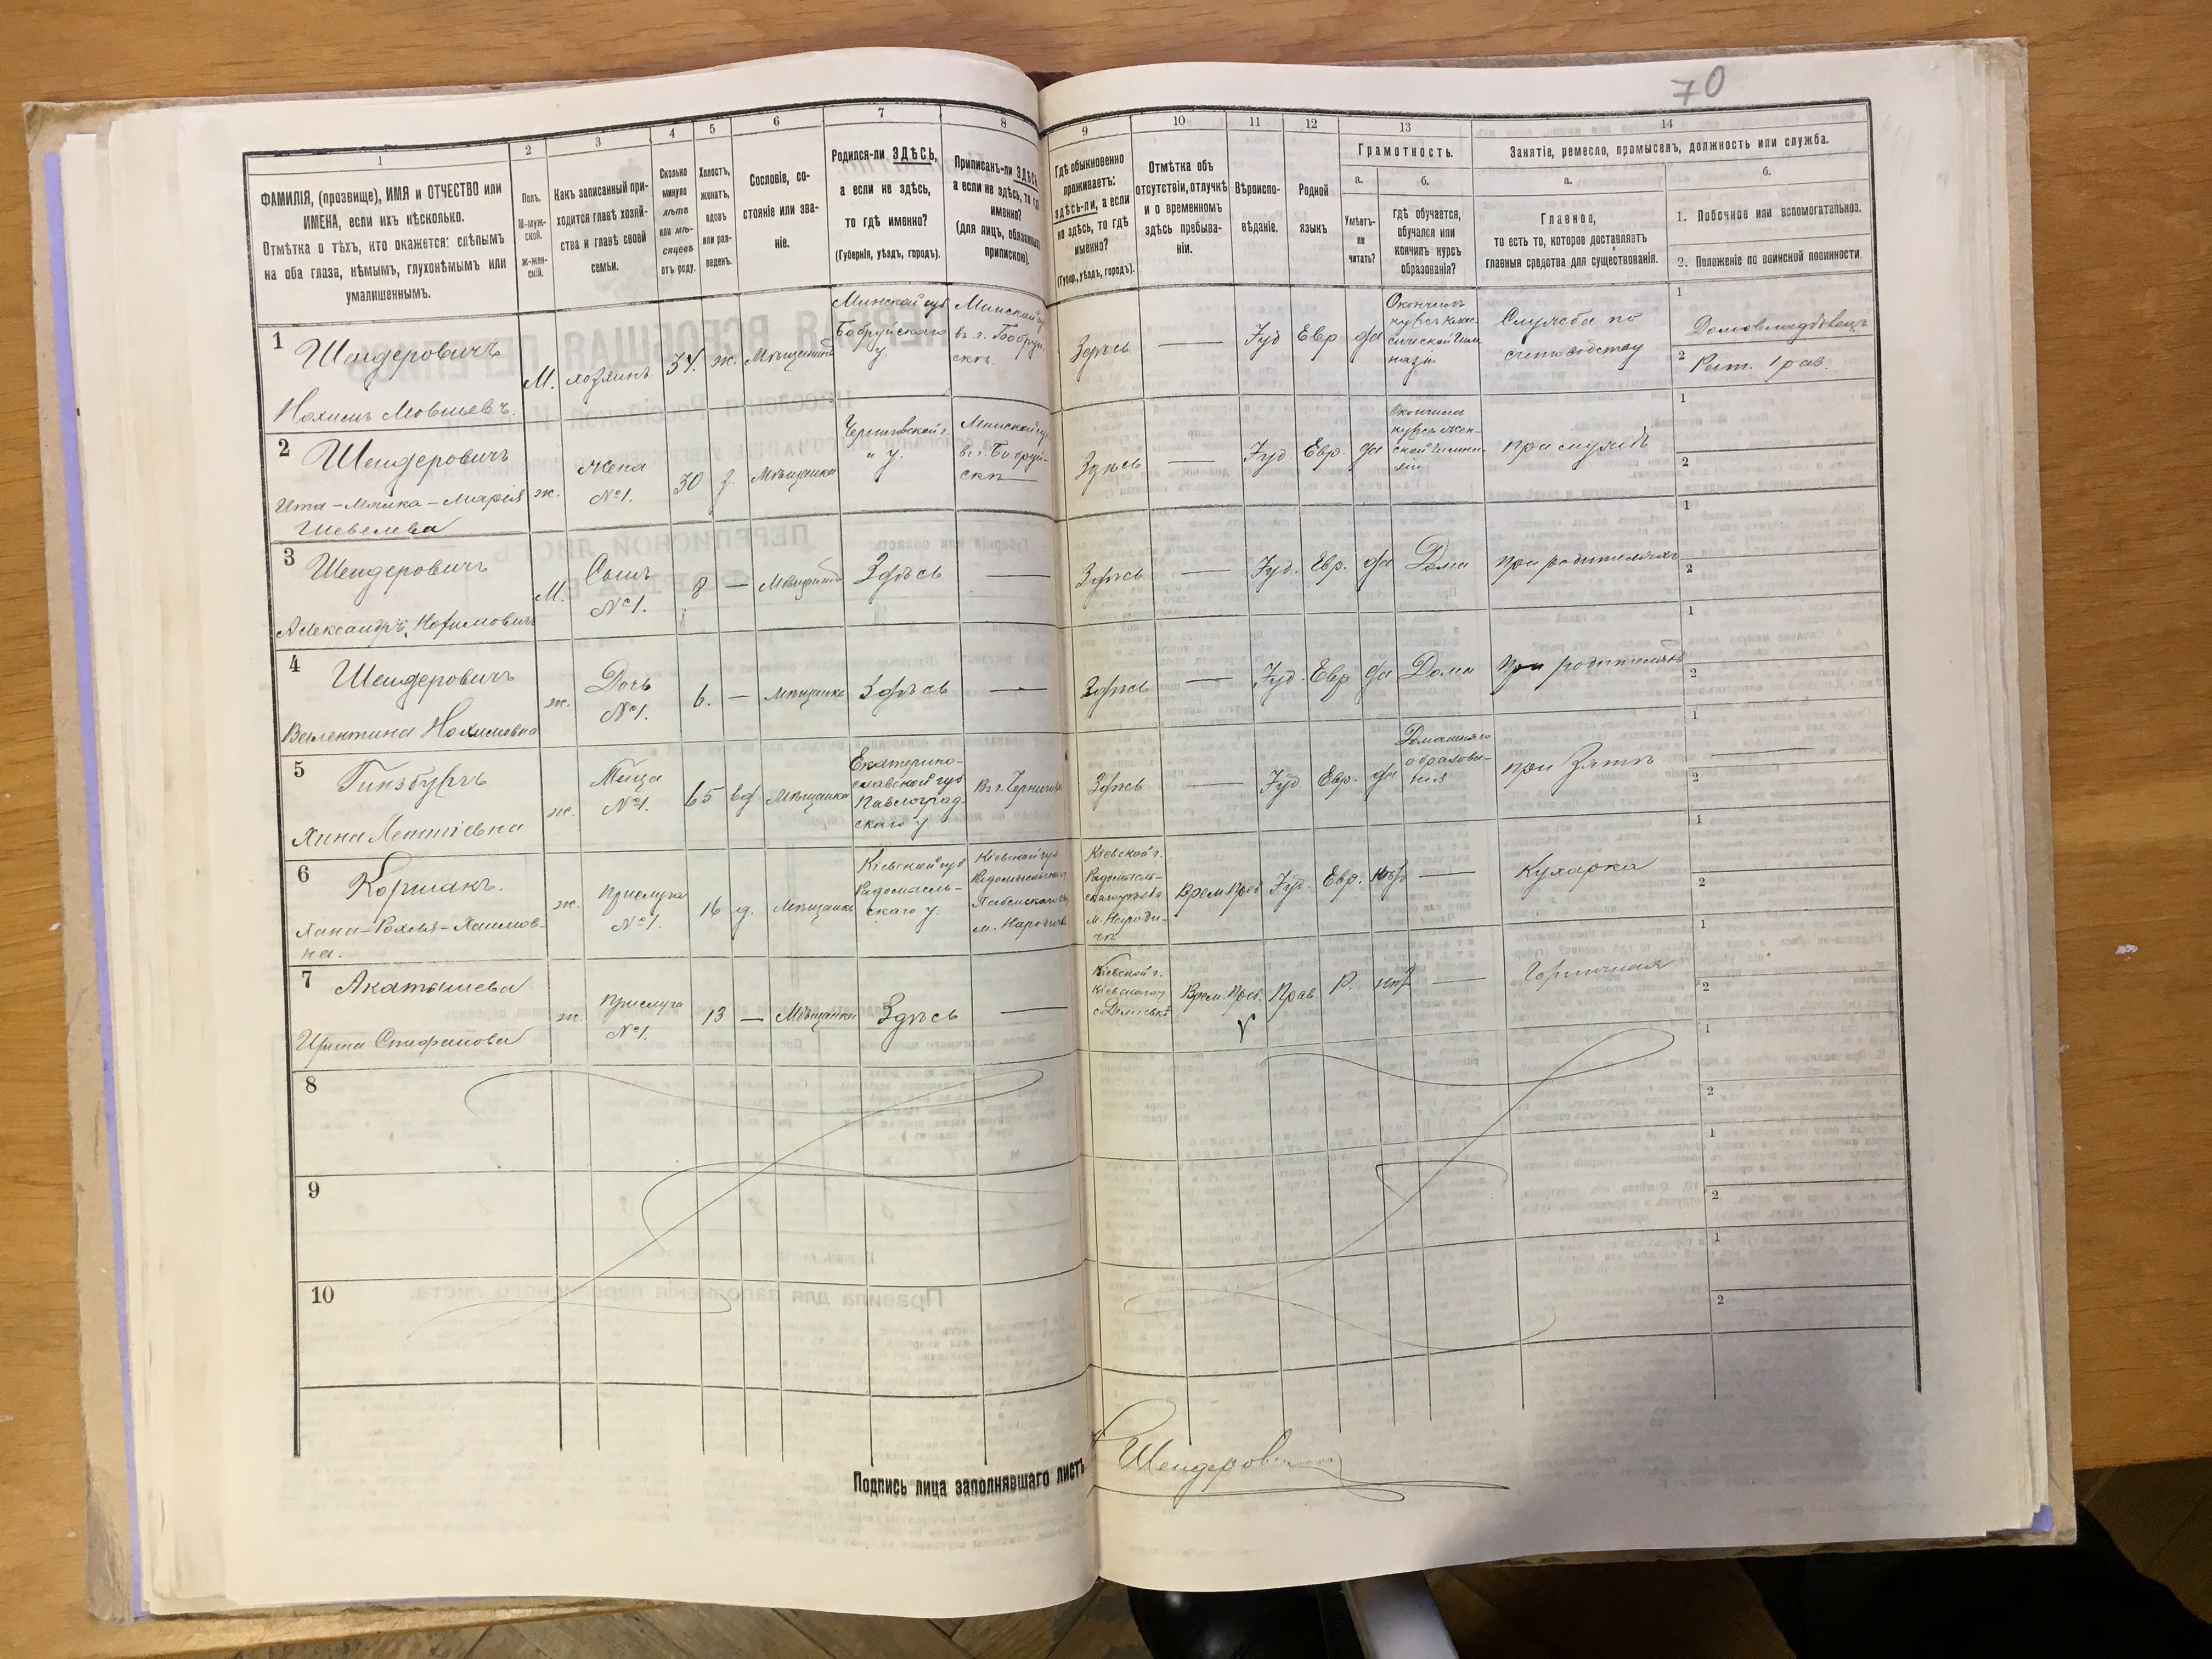 70
1
2
3
4
5
6
7
8
9
10
11
12
13
14
ФАМИЛІЯ, (прозвище), ИМЯ и ОТЧЕСТВО или
ИМЕНА, если ихъ нѣсколько.
Отмѣтка о тѣхъ, кто окажется: слѣпымъ
на оба глаза, нѣмымъ, глухонѣмымъ или
умалишеннымъ.
Полъ.
М-муж-
ской.
Ж-жен-
скій.
Какъ записанный при-
ходится главѣ хозяй-
ства и главѣ своей
семьи.
Сколько
минуло
лѣтъ
или мѣ-
сяцевъ
отъ роду.
Холостъ,
женатъ,
вдовъ
или раз-
веденъ.
Сословіе, со-
стояніе или зва-
ніе.
Родился-ли ЗДѢСЬ,
а если не здѣсь,
то гдѣ именно?
(Губернія, уѣздъ, городъ).
Приписанъ-ли ЗДѢСЬ,
а если не здѣсь, то гдѣ
именно?
(для лицъ, обязанныхъ
припискою).
Гдѣ обыкновенно
проживаетъ:
здѣсь-ли, а если
не здѣсь, то гдѣ
именно?
(Губер., уѣздъ, городъ).
Отмѣтка объ
отсутствіи, отлучкѣ
и о временномъ
здѣсь пребыва-
ніи.
Вѣроиспо-
вѣданіе.
Родной
языкъ
Грамотность.
а.
б.
Умѣетъ-
ли
читать?
гдѣ обучается,
обучался или
кончилъ курсъ
образованія?
Занятіе, ремесло, промыселъ, должность или служба.
а.
б.
Главное,
то есть то, которое доставляетъ
главныя средства для существованія.
1. Побочное или вспомогательное.
2. Положеніе по воинской повинности.
1
Шендеровичъ
Нохимъ Мовшевъ.
М.
хозяинъ
34.
ж.
Мѣщанинъ
Минской губ
Бобруйскаго
у.
Минской гу
въ г. Бобруй-
скѣ.
Здѣсь
—
Іуд
Евр
да
Окончилъ
курсъ клас-
сической гим
назіи
Служба по
счетоводству
1
Домовладѣлецъ
2
Рат. 1 раз.
2
Шендеровичъ
Ита-Малка-Марія
Шевелева
ж.
Жена
№1.
30
з.
Мѣщанка
Черниговской г.
" у.
Минской гу
въ г. Бобруй-
скѣ
Здѣсь
—
Іуд.
Евр.
да
Окончила
курсъ жен-
ской гимна-
зіи
при мужѣ
1
2
3
Шендеровичъ
Александръ Нохимовичъ
М.
Сынъ
№1.
8
—
Мѣщанинъ
Здѣсь
—
Здѣсь
—
Іуд.
Евр.
да
Дома
при родителяхъ
1
2
4
Шендеровичъ
Валентина Нохимовна
ж.
Дочь
№1.
6.
—
Мѣщанка
Здѣсь
—
Здѣсь
—
Іуд.
Евр
да
Дома
При родителяхъ
1
2
5
Гинзбургъ
ж.
Теща
№1.
65
вд
Мѣщанка
Екатерино-
славской губ
Павлоград-
скаго у.
Въ г. Чернигов
Здѣсь
—
Іуд
Евр.
да
Домашняго
образова-
нія
при Зятѣ
1
—
2
6
Коршакъ.
Хана-Рохля-Хаимов-
на.
ж.
Прислуга
№1.
16
д.
Мѣщанка
Кіевской губ
Радомысль-
скаго у.
Кіевской губ
м. Народичи
Кіевской г.
Радомысль-
скаго уѣзда
м. Народи-
чи
Врем. Преб
Іуд.
Евр.
нѣт
—
Кухарка
1
2
7
Акатышева
Ирина Стефанова
ж.
Прислуга
№1.
13
—
Мѣщанка
Здѣсь
—
Кіевской г.
Кіевскаго у
с. Деміевкѣ
Врем. Преб.
Прав.
Р.
нѣт
—
Горничная
1
2
8
1
2
9
1
2
10
1
2
Подпись лица заполнявшаго листъ
Шендерович